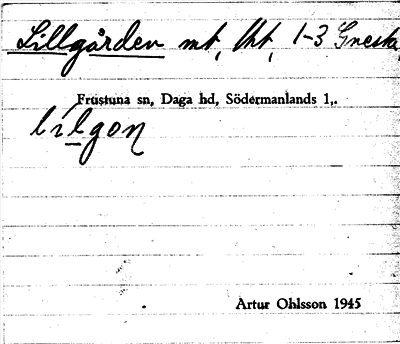 Lillgården mt, lht, 1-3 Gnesta
Frustuna sn, Daga hd, Södermanlands l,.
lilgon
Artur Ohlsson 1945